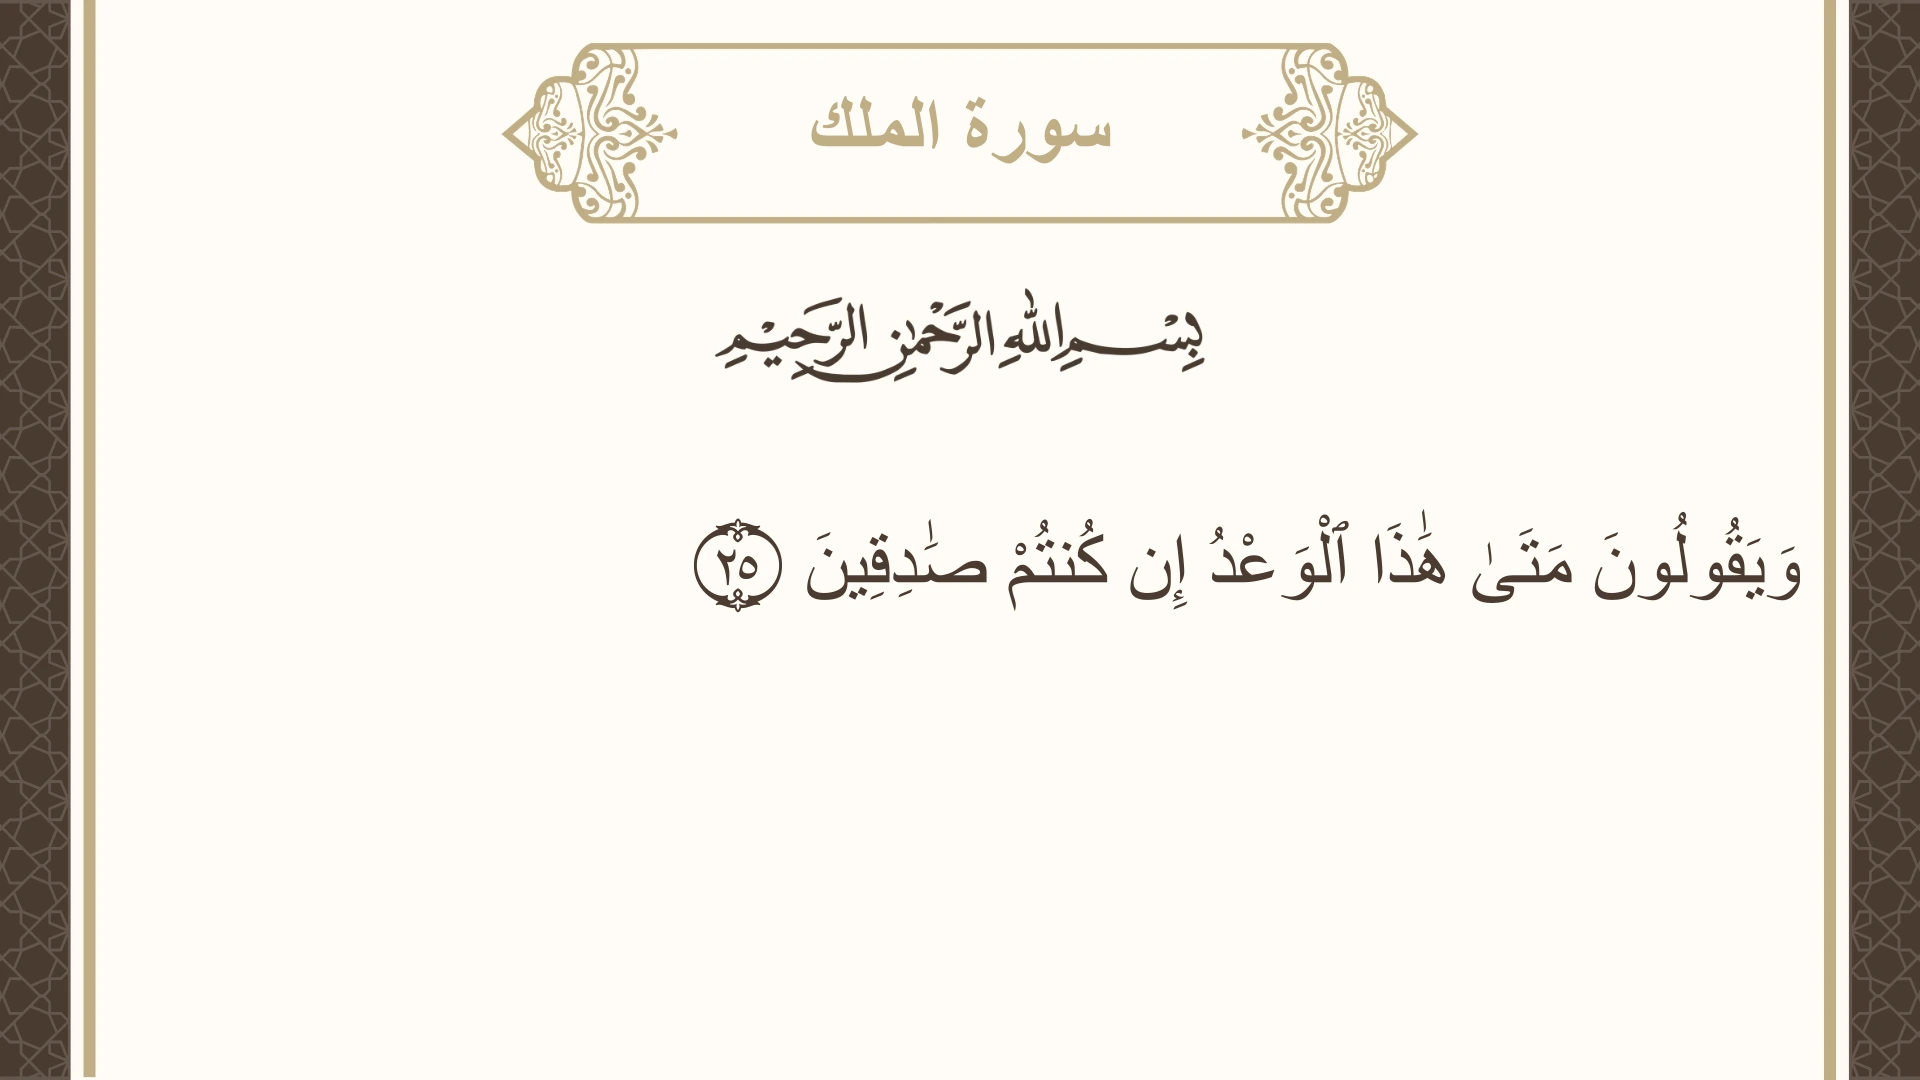 سورة الملك
بِسْمِ اللهِ الرَّحْمٰنِ الرَّحِيْمِ
وَيَقُولُونَ مَتَىٰ هَٰذَا ٱلْوَعْدُ إِن كُنتُمْ صَٰدِقِينَ ٢٥